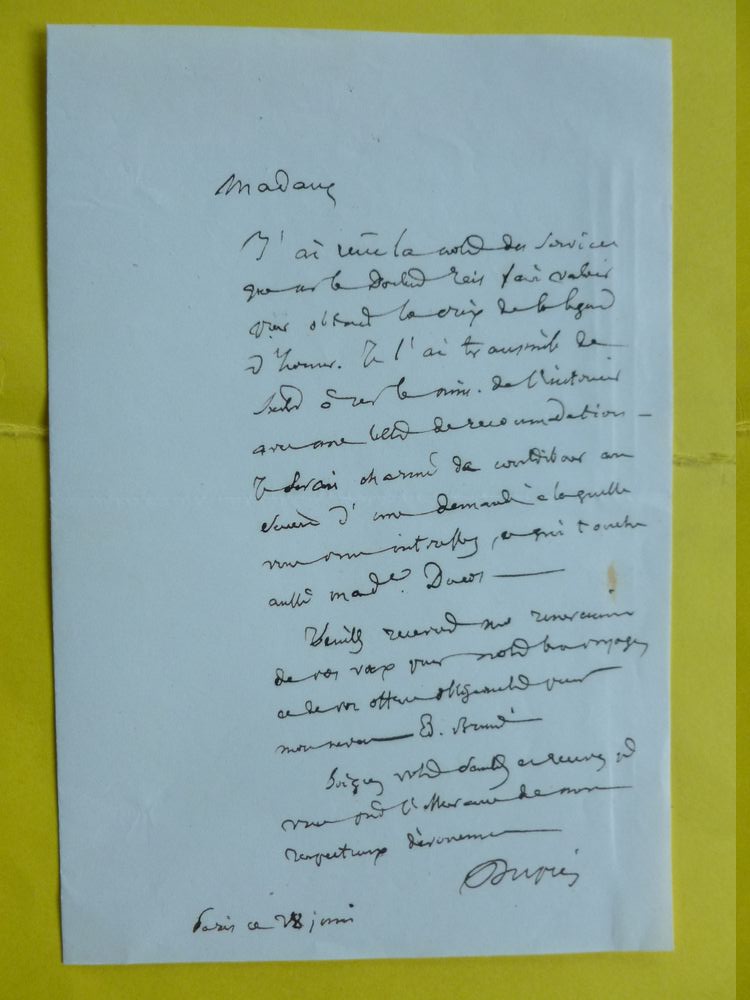 Madame
J'ai reçu la note des services
que m. le Docteur Reis fait valoir
pour obtenir la croix de la légion
d'honneur. Je l'ai transmise de
suite à le min. de l'intérieur
avec une lettre de recommandation —
Je serai charmé de contribuer au
succès d'une demande à laquelle
vous vous intéressez, et qui touche
aussi made. Ducos —
Veuillez recevoir mes remerciemens
de vos vœux pour notre bon voyage
et de vos offres obligeantes pour
mon neveu Ed.
Soignez votre santé et recevez
vous l'assurance de mon
respectueux dévouement
Dupin
Paris ce 28 juin